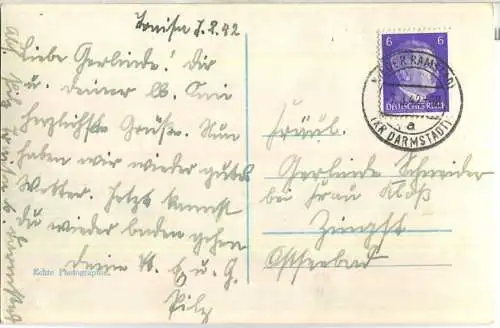 Traisa 7.8.42
Liebe Gerlinde! Dir
u. deiner lb. Omi
herzlichste Grüße. Nun
haben wir wieder gutes
Wetter. Jetzt kannst
du wieder baden gehen
deine
u. G.
Pilz
Echte Photographie.
6 6
DEUTSCHES REICH
NIEDER RAMSTADT
a
(KR DARMSTADT)
Fräul.
Gerlinde Schneider
bei Frau Klöß
Zingst
Ostseebad